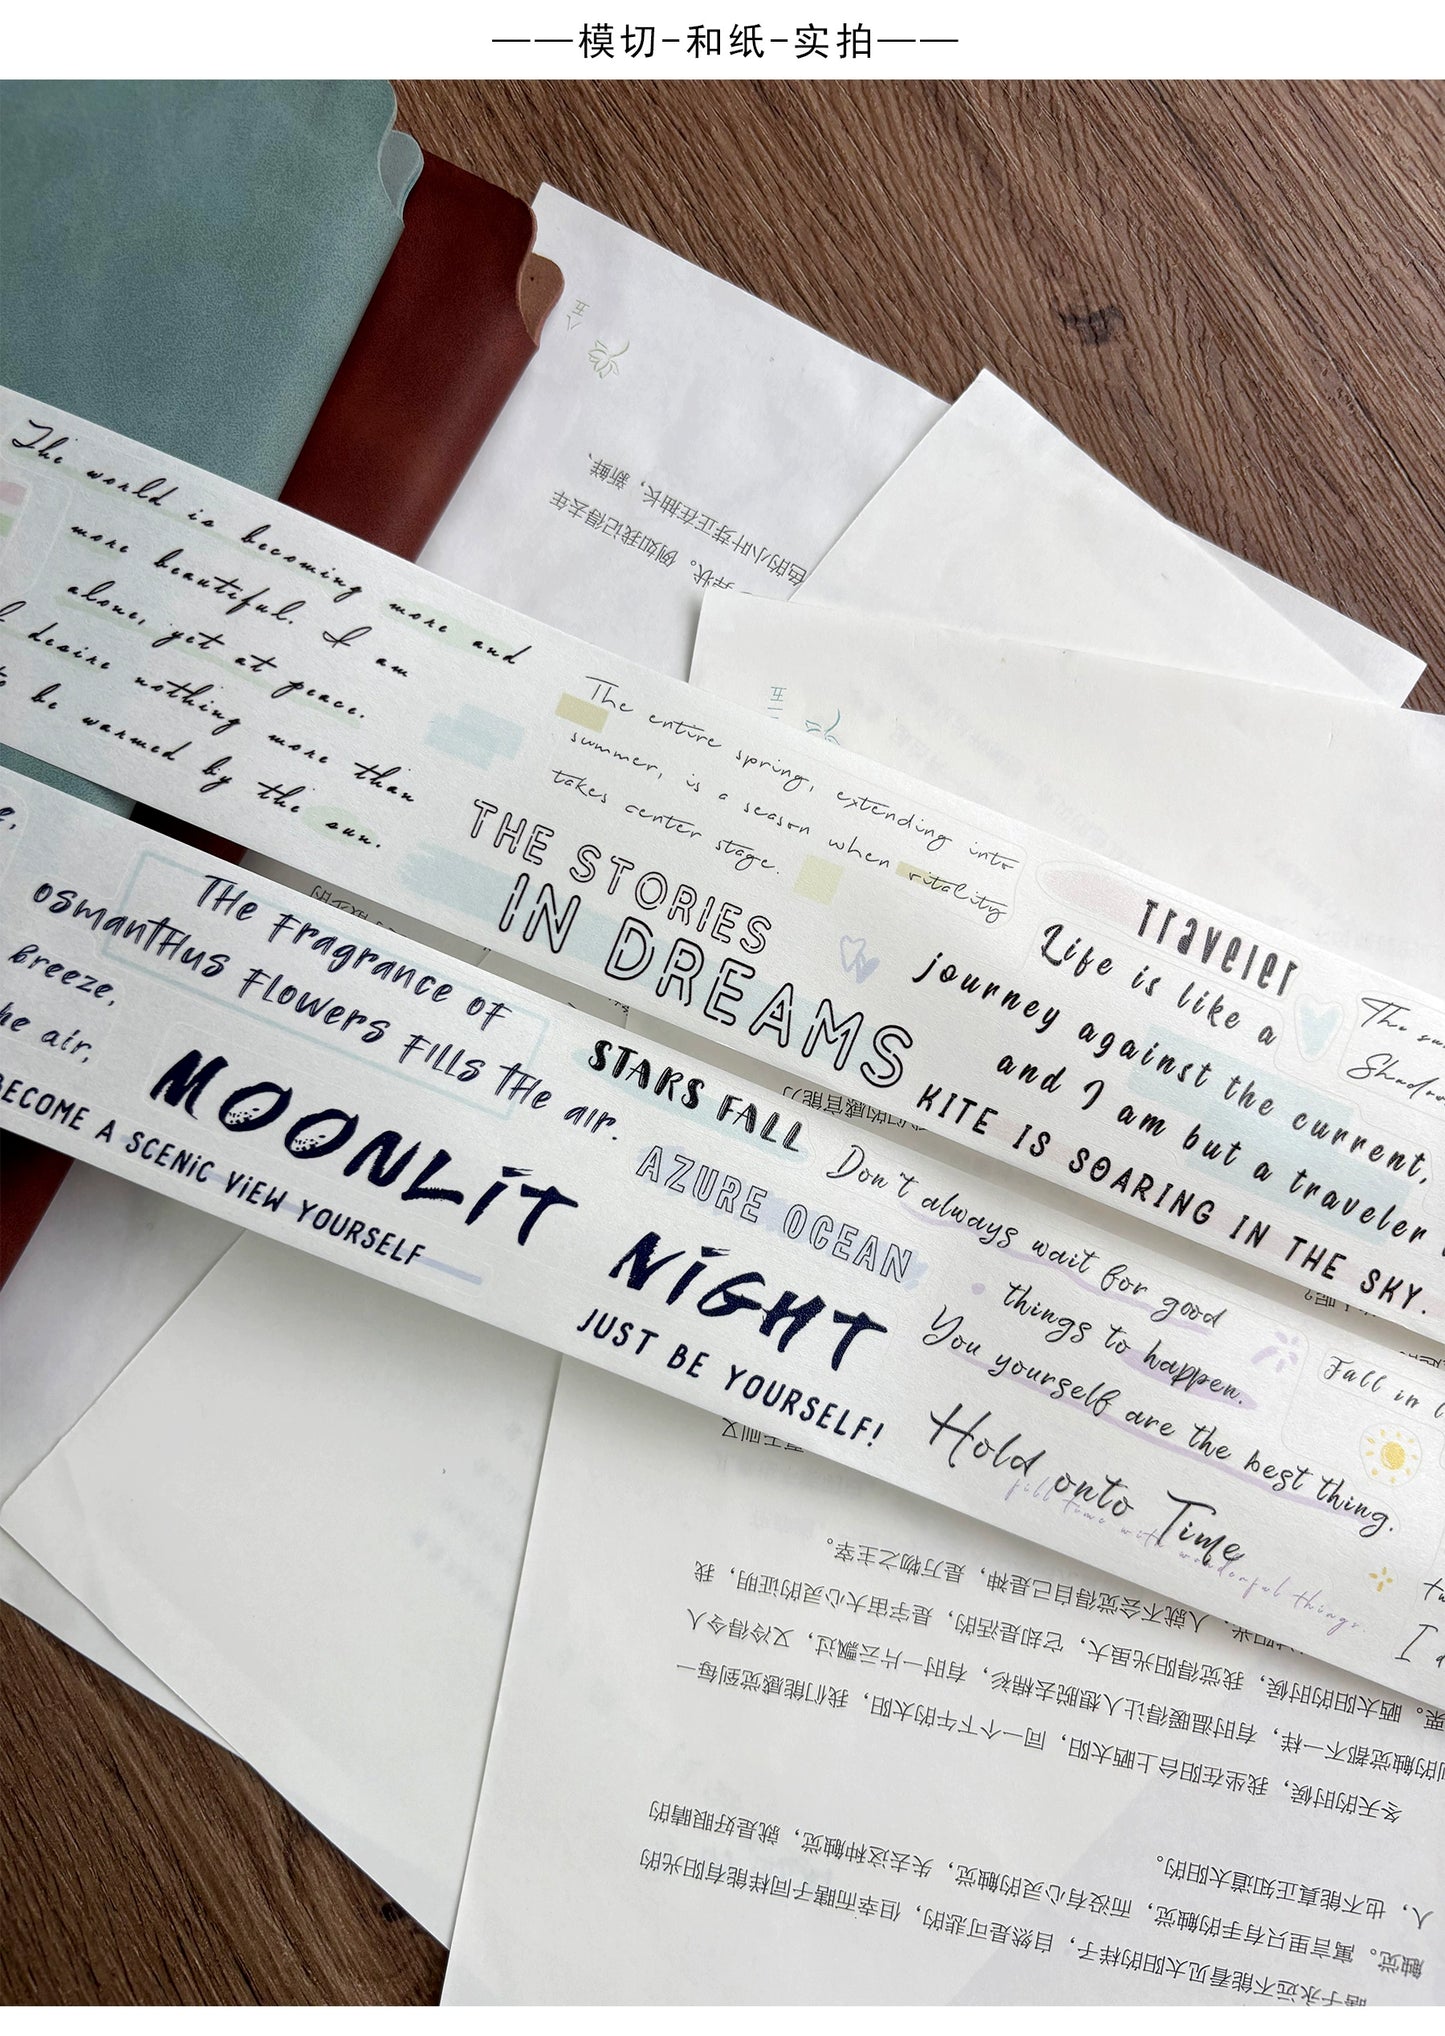 ——模切-和纸-实拍——
五
色的小叶芽正在抽长，新鲜、
异状。例如我记得去年
五
The world is becoming more and
more beautiful. I am
alone, yet at peace.
desire nothing more than
be warmed by the sun.
The entire spring, extending into
summer, is a season when vitality
takes center stage.
THE STORIES
IN DREAMS
Traveler
Life is like a
journey against the current,
and I am but a traveler
KITE IS SOARING IN THE SKY.
The
THE FRAGRANCE OF
OSMANTHUS FLOWERS FILLS THE AIR.
BREEZE,
he air,
MOONLIT
NIGHT
BECOME A SCENIC VIEW YOURSELF
STARS FALL
AZURE OCEAN
JUST BE YOURSELF!
Don't always wait for good
things to happen.
You yourself are the best thing.
Hold onto Time
fill time with wonderful things.
Fall in
I
的感官能
瞎子永远不能看见太阳的样子，自然是可悲的，但幸而瞎子同样能有阳光的
触觉。寓言里只有手的触觉，而没有心灵的触觉，失去这种触觉，就是好眼睛的
人，也不能真正知道太阳的。
冬天的时候，我坐在阳台上晒太阳，同一个下午的太阳，我们能感觉到每一
的触觉都不一样，有时温暖得让人想脱去棉衫，有时一片云飘过，又冷得令人
晒太阳的时候，我觉得阳光虽大，它却是活的，是宇宙大心灵的证明，我
人就不会觉得自己是神，是万物之主宰。